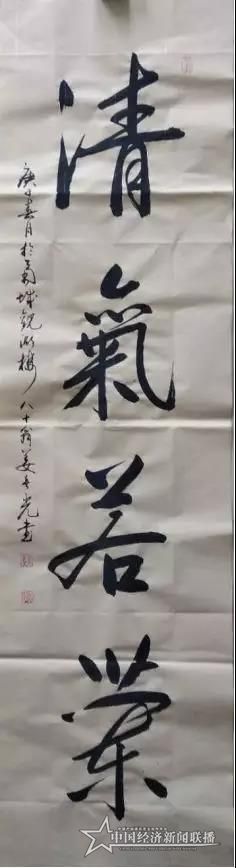 清氣若蘭
庚子春月於城觀湖樓 八十翁姜光書
中国经济新闻联播